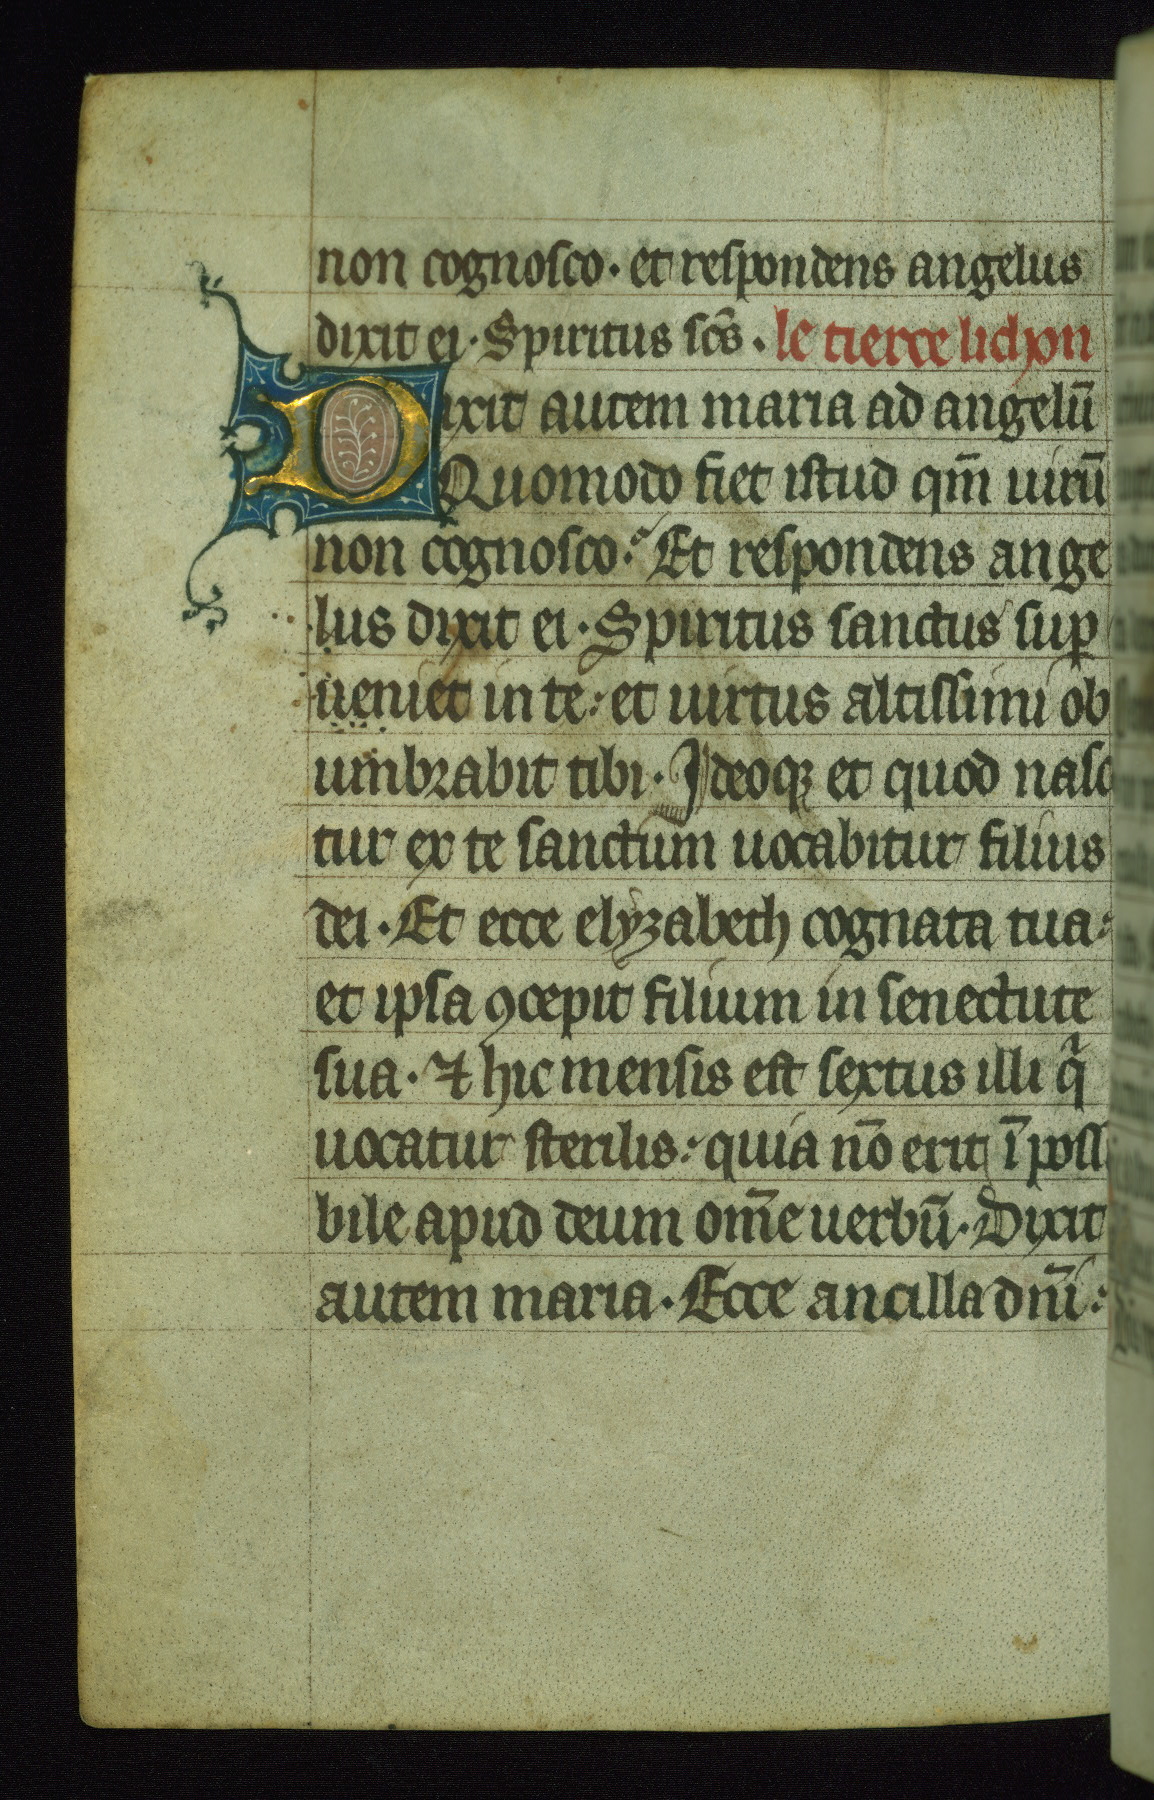 non cognoſco · et reſpondens angelus
dixit ei · Spiritus ſc̄s · le tierce lichon
Dixit autem maria ad angelū
Quomodo fiet iſtud qm̄ uirū
non cognoſco : Et reſpondens ange
lus dixit ei · Spiritus ſanctus ſuꝑ
ueniet in te : et uirtus altiſſimi ob
umbrabit tibi · Ideoqꝫ et quod naſc
tur ex te ſanctum uocabitur filius
dei · Et ecce elyzabeth cognata tua :
et ipſa ꝯcepit filium in ſenectute
ſua · ⁊ hic menſis eſt ſextus illi q̄
uocatur ſterilis : quia nō erit īpoſſ
bile apud deum om̄e uerbū · Dixit
autem maria · Ecce ancilla dn̄i :